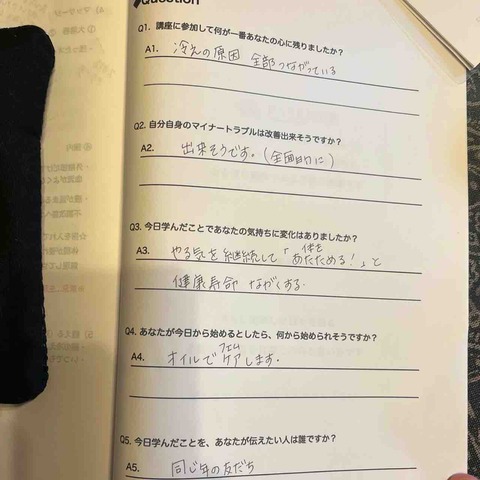 Question
Q1. 講座に参加して何が一番あなたの心に残りましたか?
A1. 冷えの原因 全部つながっている
Q2. 自分自身のマイナートラブルは改善出来そうですか?
A2. 出来そうです。(全面的に)
Q3. 今日学んだことであなたの気持ちに変化はありましたか?
A3. やる気を継続して「体をあたためる!」と
健康寿命 ながくする。
Q4. あなたが今日から始めるとしたら、何から始められそうですか?
A4. オイルでフェムケアします。
Q5. 今日学んだことを、あなたが伝えたい人は誰ですか?
A5. 同じ年の友だち